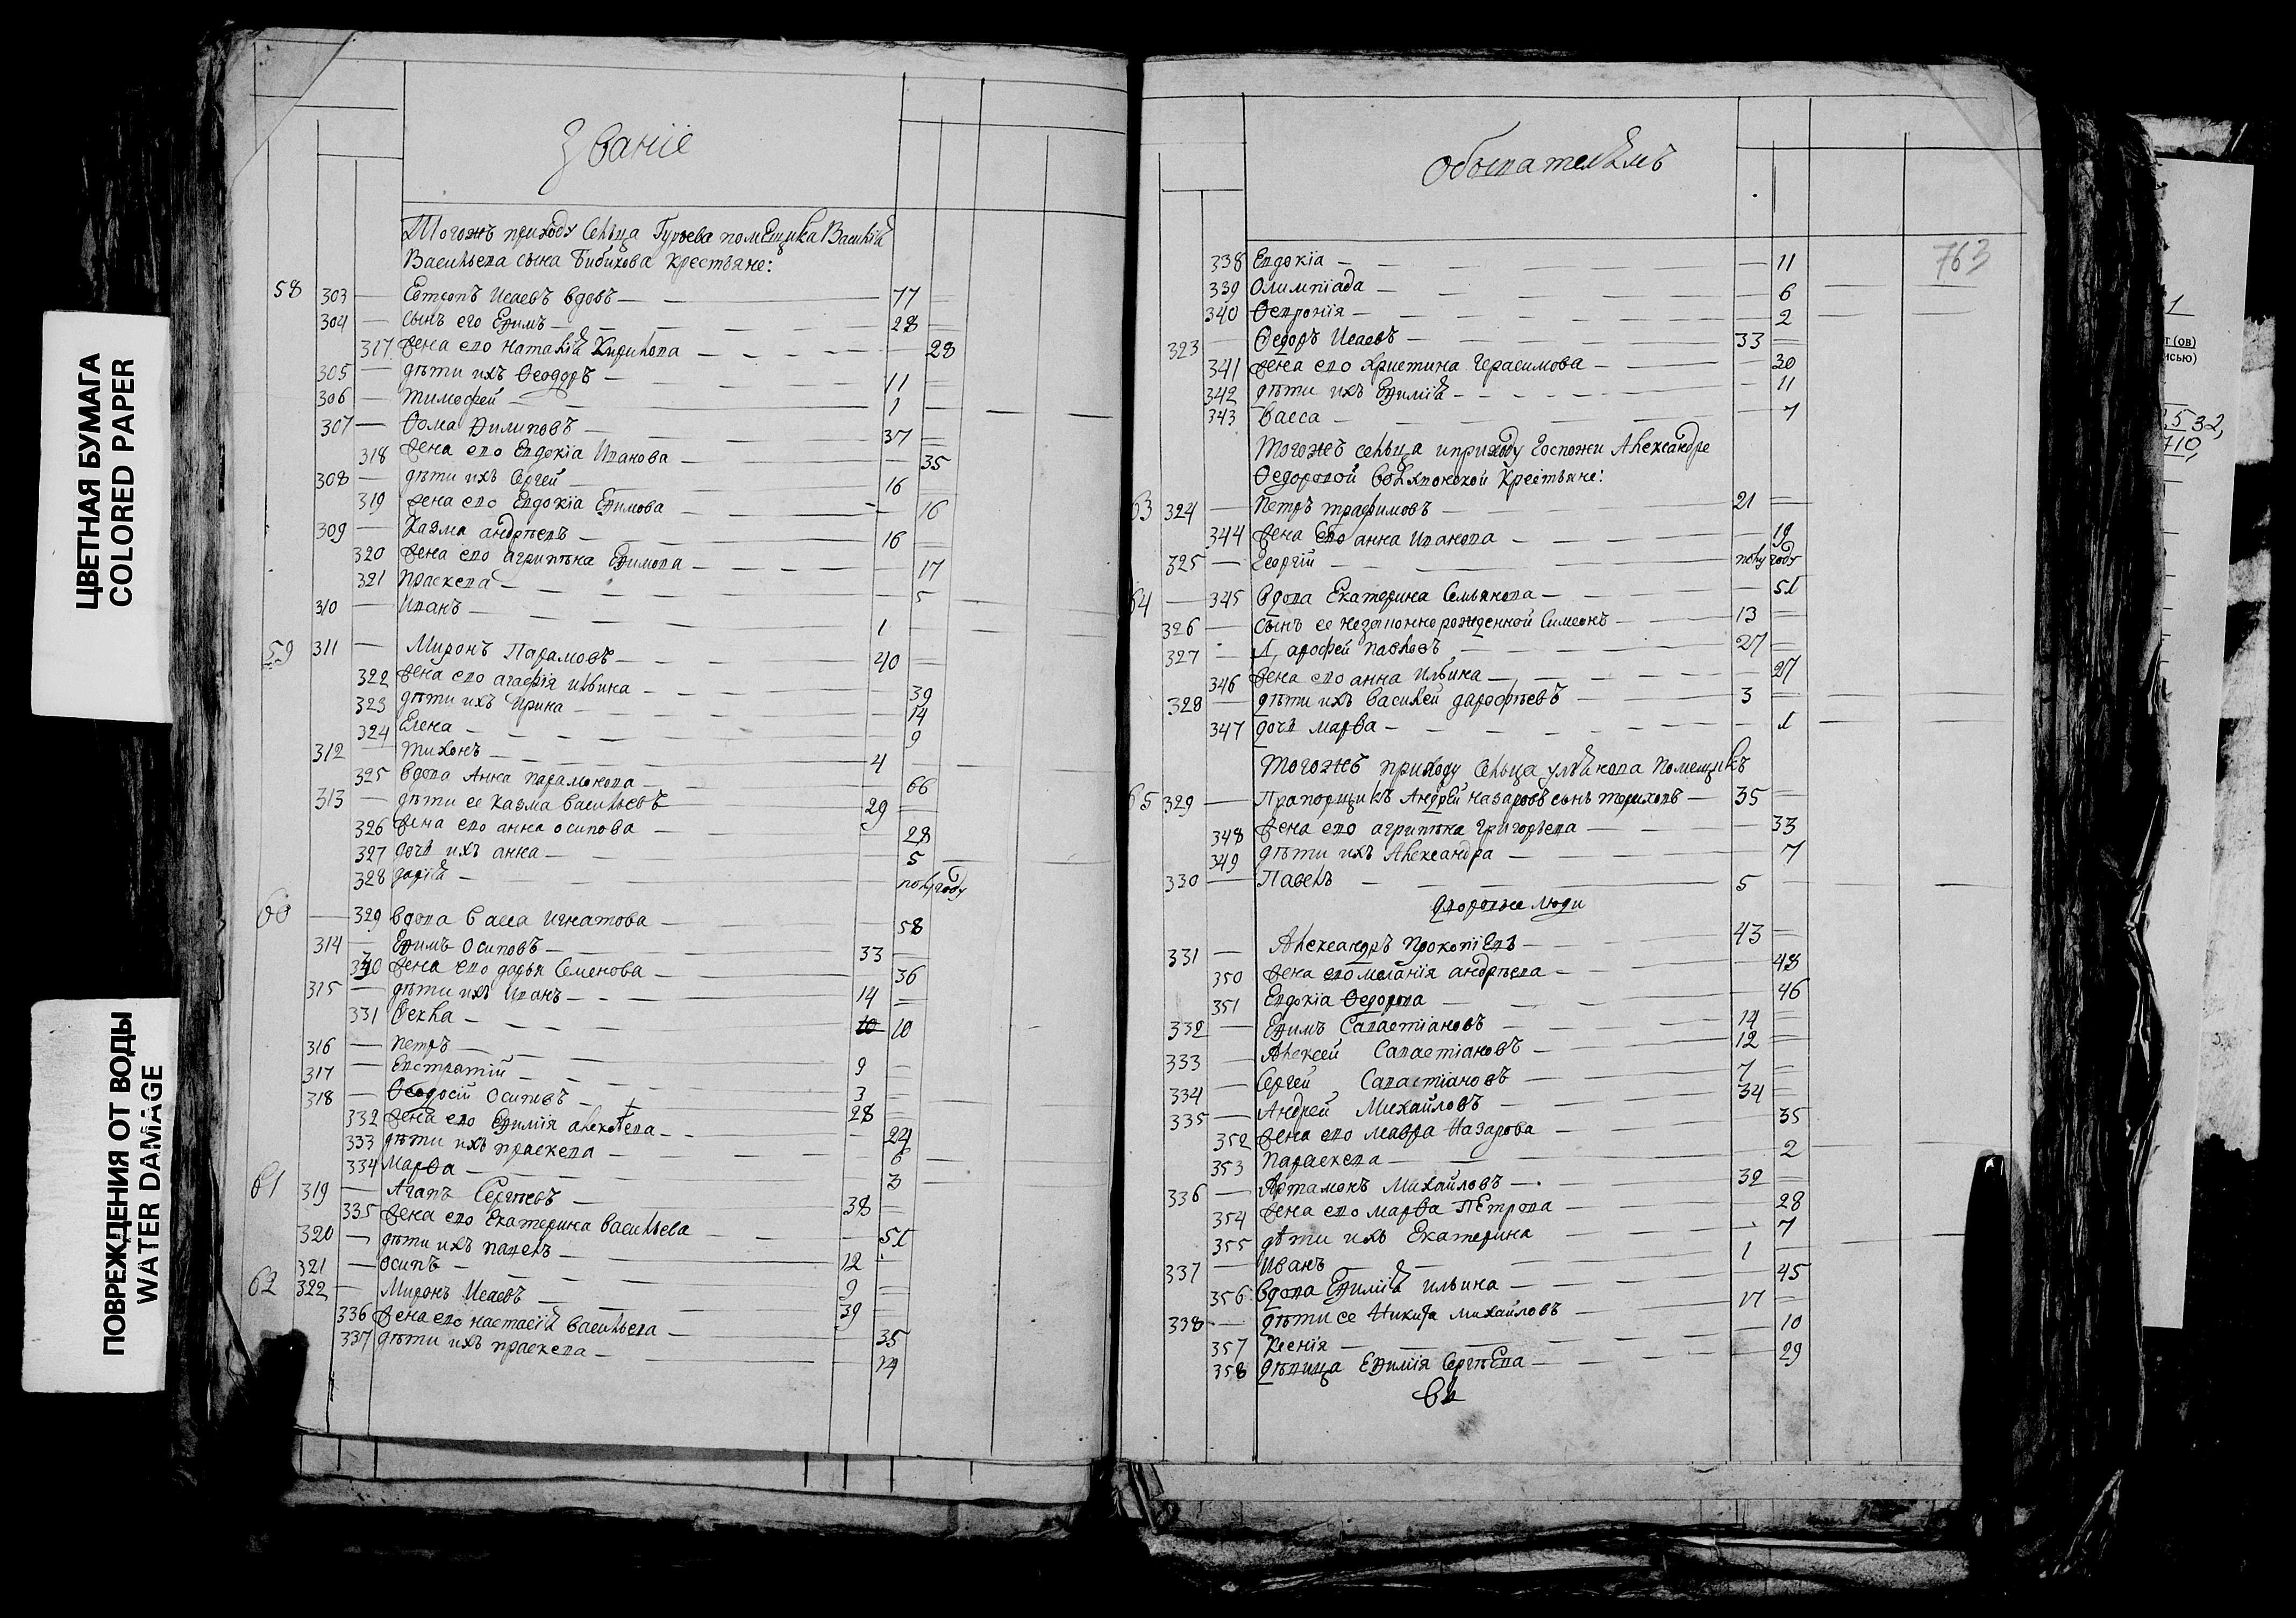 ЦВЕТНАЯ БУМАГА
COLORED PAPER
ПОВРЕЖДЕНИЯ ОТ ВОДЫ
WATER DAMAGE
Званіе
Тогожъ приходу селца Гурьева помещика Василия
Васильева сына Бибикова крестьяне:
58 303 — Евтропъ Исаевъ вдовъ — 77
304 — сынъ его Ефимъ — 28
317 жена ево наталия Кирилова — 28
305 — дѣти ихъ Ѳеодоръ — 11
306 — тимофей — 1
307 — Ѳома Филиповъ — 37
318 жена ево Евдокіа Иванова — 35
308 — дѣти ихъ Сергей — 16
319 жена ево Евдокіа Ефимова — 16
309 — Казма андрѣевъ — 16
320 жена ево агрипѣна Ефимова — 17
321 праскева — 5
310 — Иванъ — 1
59 311 — Миронъ Парамовъ — 40
322 жена ево агафія ильина — 39
323 дѣти ихъ Ирина — 14
324 Елена — 9
312 — тихонъ — 4
325 вдова Анна парамонова — 66
313 — дѣти ее казма васильевъ — 29
326 жена ево анна осипова — 28
327 дочь ихъ анна — 5
328 дарія — полугоду
60 — 329 вдова васса игнатова — 58
314 — Ефимъ осиповъ — 33
330 жена ево дарья Семенова — 36
315 — дѣти ихъ иванъ — 14
331 Ѳекла — 10 10
316 — петръ — 9
317 — Евстратий — 3
318 — Ѳеодосій осиповъ — 28
332 жена ево Ефимія алексѣева — 24
333 дѣти ихъ праскева — 6
334 Марѳа — 3
61 319 — Агапъ Сергѣевъ — 38
335 жена ево Екатерина васильева — 51
320 — дѣти ихъ павелъ — 12
321 — осипъ — 9
62 322 — Миронъ Исаевъ — 39
336 жена ево настасія васильева — 35
337 дѣти ихъ праскева — 14
Обывателѣмъ
763
338 Евдокіа — 11
339 Олимпіада — 6
340 Ѳевронія — 2
323 — Ѳедоръ Исаевъ — 33
341 жена ево Христина Герасимова — 30
342 дѣти ихъ Ефимія — 11
343 васса — 7
Тогожъ селца и приходу Госпожи Александре
Ѳедоровой крестьяне:
63 324 — Петръ трафимовъ — 21
344 жена Ево анна иванова — 19
325 — Георгій — полугоду
64 — 345 вдова Екатерина Семьянова — 51
326 — сынъ ее незаконнорожденной Симеонъ — 13
327 — Дарофей павловъ — 27
346 жена ево анна ильина — 27
328 — дѣти ихъ василей дарофѣевъ — 3
347 дочь марѳа — 1
Тогожъ приходу селца помещикъ
65 329 — Прапорщикъ Андрей назаровъ сынъ — 35
348 жена ево агрипѣна григорьева — 33
349 дѣти ихъ Александра — 7
330 — Павелъ — 5
дворовые люди
331 — Александръ прокопіевъ — 43
350 жена ево меланія андрѣева — 48
351 Евдокіа Ѳедорова — 46
332 — Ефимъ Савастіановъ — 14
333 — Алексей Савастіановъ — 12
334 — Сергей Савастіановъ — 7
335 — Андрей Михайловъ — 34
352 жена ево мавра назарова — 35
353 параскева — 2
336 — Артамонъ Михайловъ — 32
354 жена ево марѳа пЕтрова — 28
355 дѣти ихъ Екатерина — 7
337 — Иванъ — 1
356 вдова Ефимія ильина — 45
338 — дѣти се Никита михайловъ — 17
357 Ксенія — 10
358 дѣвица Ефимія СергѣЕва — 29